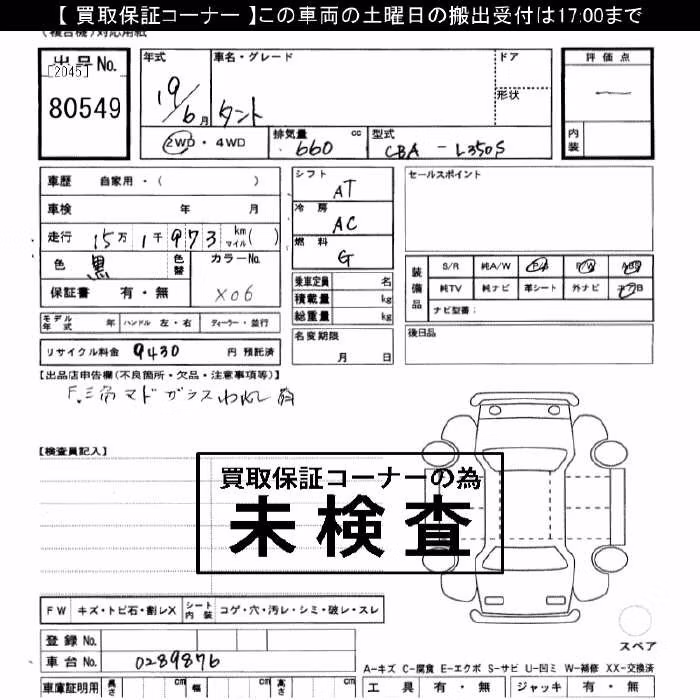 【 買取保証コーナー 】この車両の土曜日の搬出受付は17:00まで
(複合機)対応用紙
出品No.
[2045]
80549
年式
19/6月
車名・グレード
タント
ドア
形状
評価点
内装
2WD・4WD
排気量
660 cc
型式
CBA-L350S
車歴 自家用・( )
車検 年 月
走行 15万1千973 km マイル( )
色 黒 色替
カラーNo.
X06
保証書 有・無
シフト
AT
冷房
AC
燃料
G
乗車定員 名
積載量 kg
総重量 kg
セールスポイント
装備品
S/R 純A/W P/S P/W ABS
純TV 純ナビ 革シート 外ナビ エアB
ナビ型番:
モデル年式 年 ハンドル 左・右 ディーラー・並行
リサイクル料金 9430 円 預託済
名変期限
月 日
後日品
【出品店申告欄(不良箇所・欠品・注意事項等)】
F.三角マドガラスわれし
【検査員記入】
買取保証コーナーの為
未検査
FW キズ・トビ石・割レX シート内装 コゲ・穴・汚レ・シミ・破レ・スレ
登録No.
車台No. 0289876
スペア
A-キズ C-腐食 E-エクボ S-サビ U-凹ミ W-補修 XX-交換済
車庫証明用 長さ cm 幅 cm 高さ cm
工具 有・無 ジャッキ 有・無